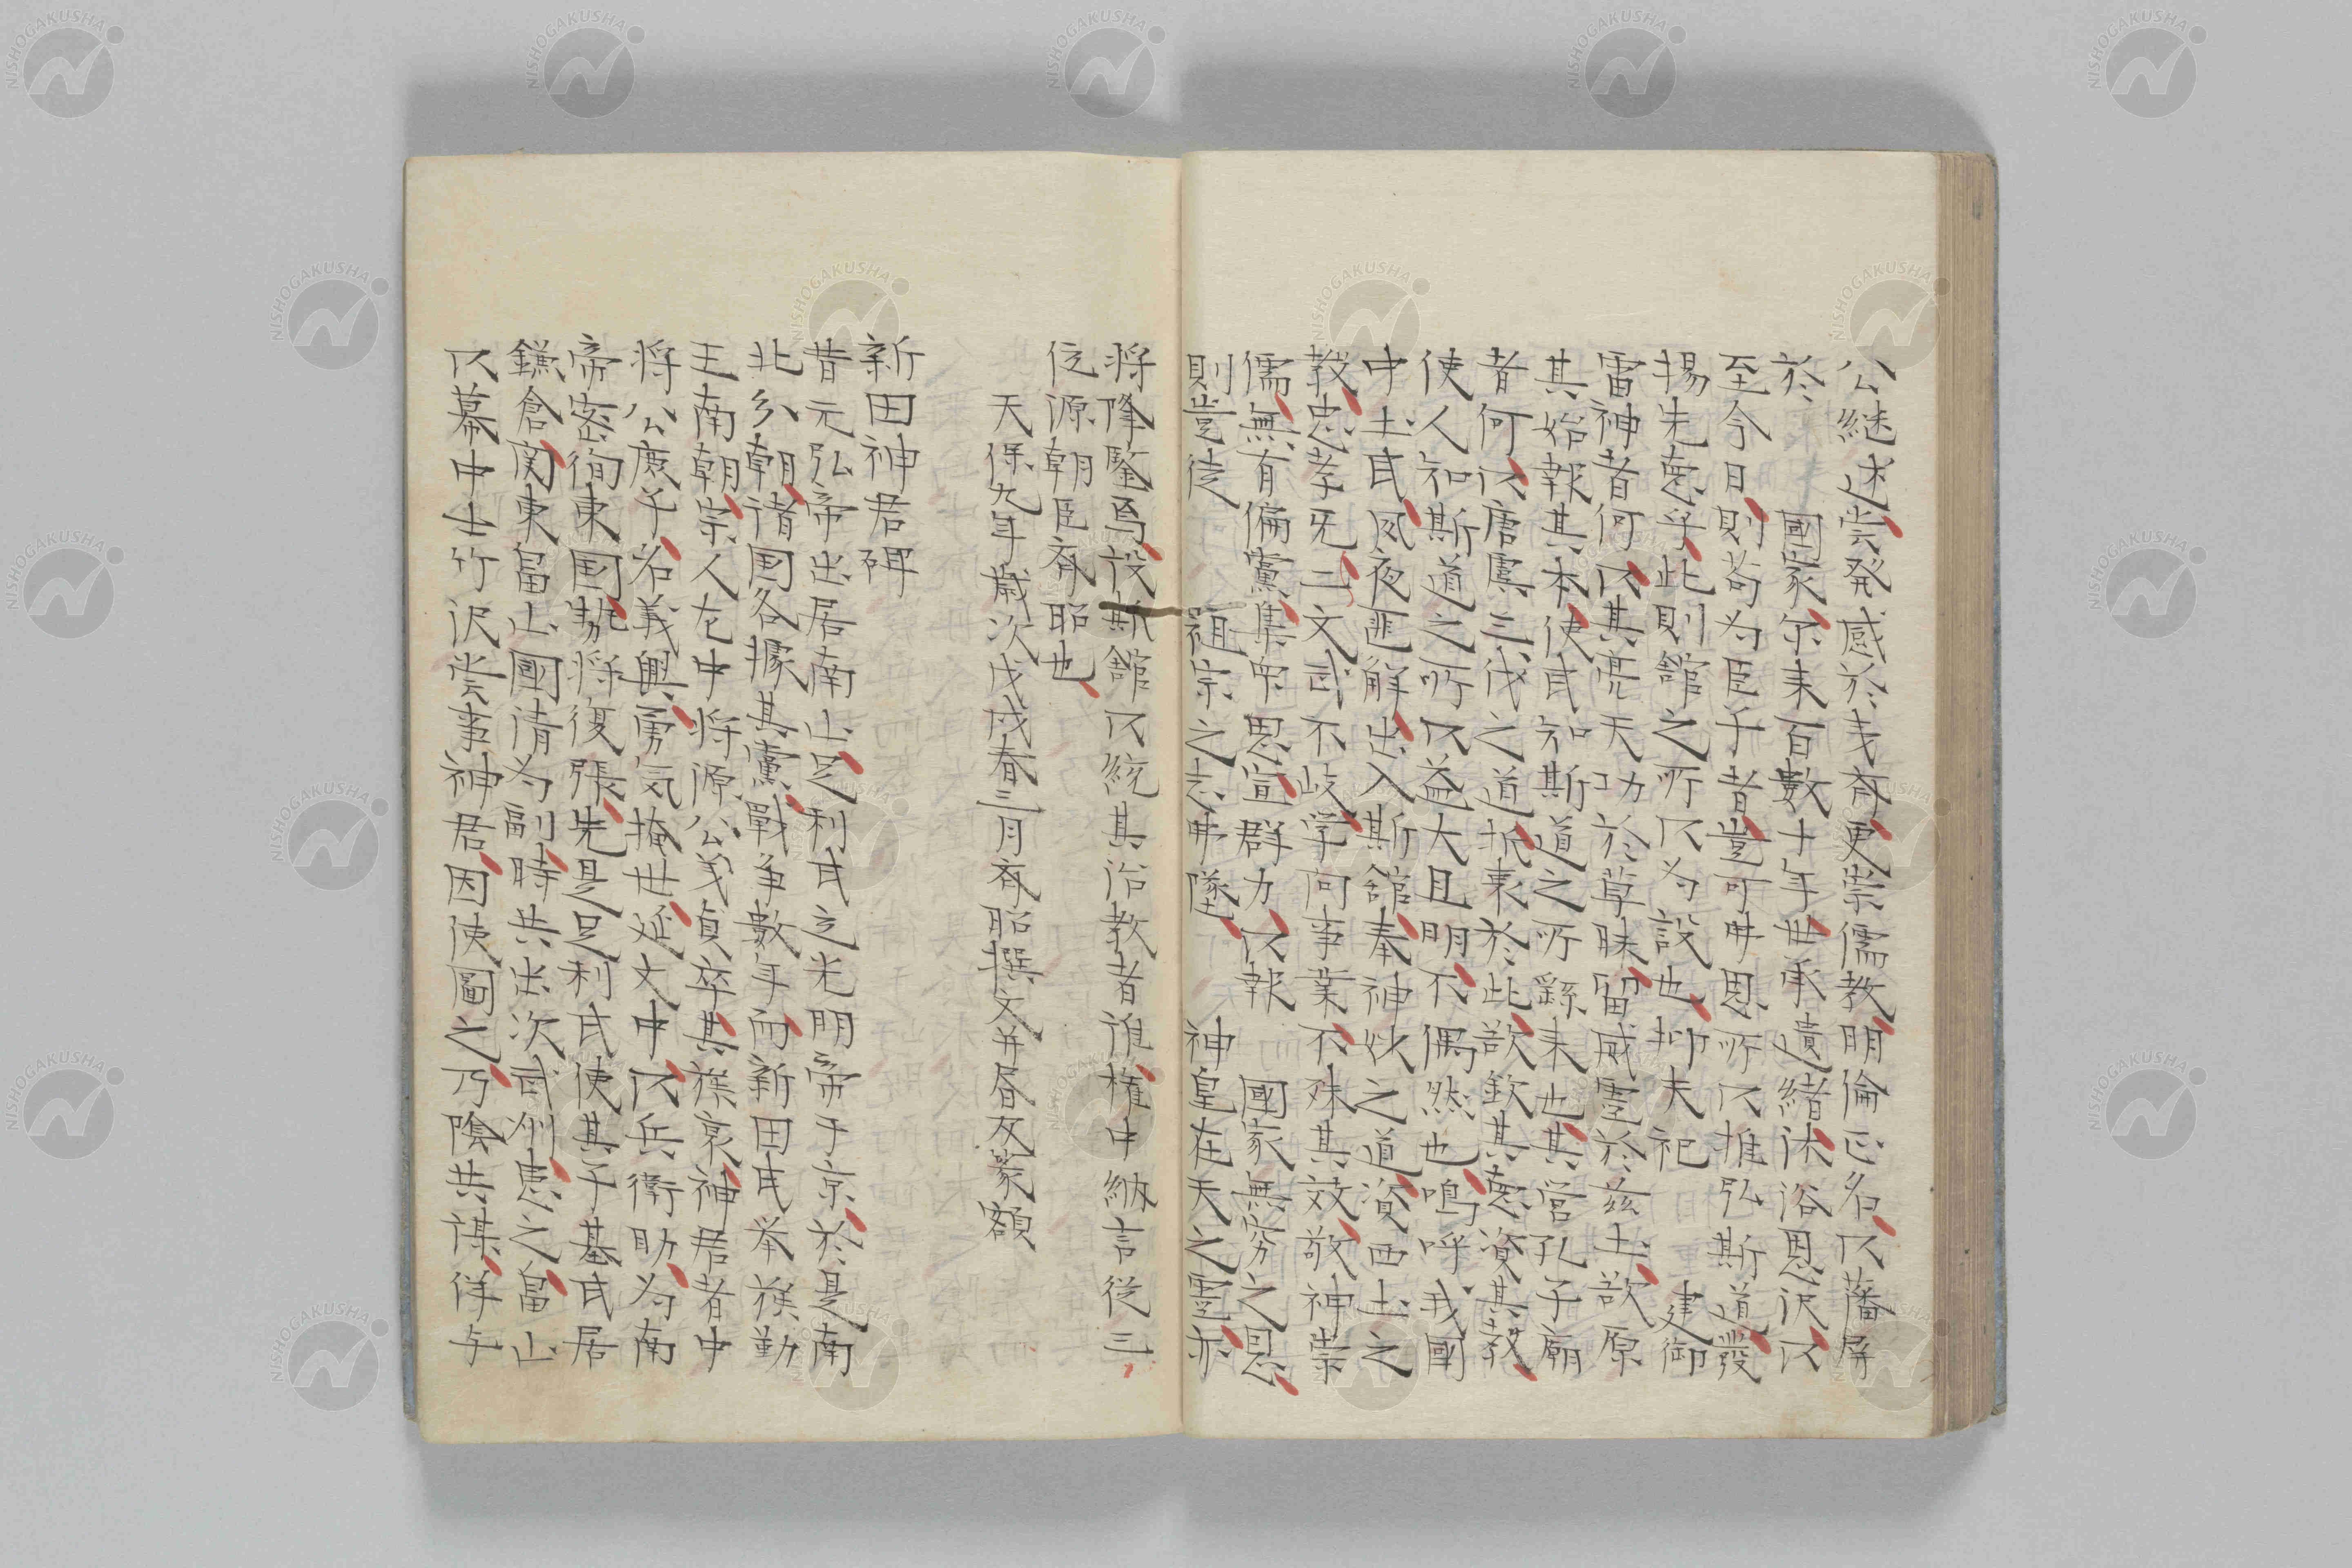 公継述嘗発感於夷齊更崇儒教明倫正名以藩屏
於　國家尓来百數十年世承遺緒沐浴恩沢以
至今日則苟為臣子者豈可弗思所以推弘斯道發
揚先德乎此則館之所以為設也抑夫祀　建御
雷神者何以其亮天功於草昧留威霊於茲土欲原
其始報其本使民知斯道之所繇来也其営孔子廟
者何以唐虞三代之道折衷於此欲欽其德資其教
使人知斯道之所以益大且明不偶然也嗚呼我國
中士民夙夜匪解出入斯館奉神州之道資西土之
教忠孝无二文武不岐学問事業不殊其效敬神崇
儒無有偏黨集衆思宣群力以報　國家無窮之恩
則豈徒　祖宗之志弗墜　神皇在天之霊亦
将降鑒焉設斯館以統其治教者誰権中納言従三
位源朝臣齊昭也
天保九年歳次戊戌春三月齊昭撰文并書及篆額
新田神君碑
昔元弘帝出居南山足利氏立光明帝于京於是南
北分朝諸国各據其黨戰争數年而新田氏挙族勤
王南朝宗人左中将源公義貞卒其族裒神君者中
将公庶子名義興勇気掩世延文中以兵衛助為南
帝密徇東国勢将復張先是足利氏使其子基氏居
鎌倉関東畠山國清為副時共出次武州患之畠山
以幕中士竹沢嘗事神君因使圖之乃陰共謀佯与